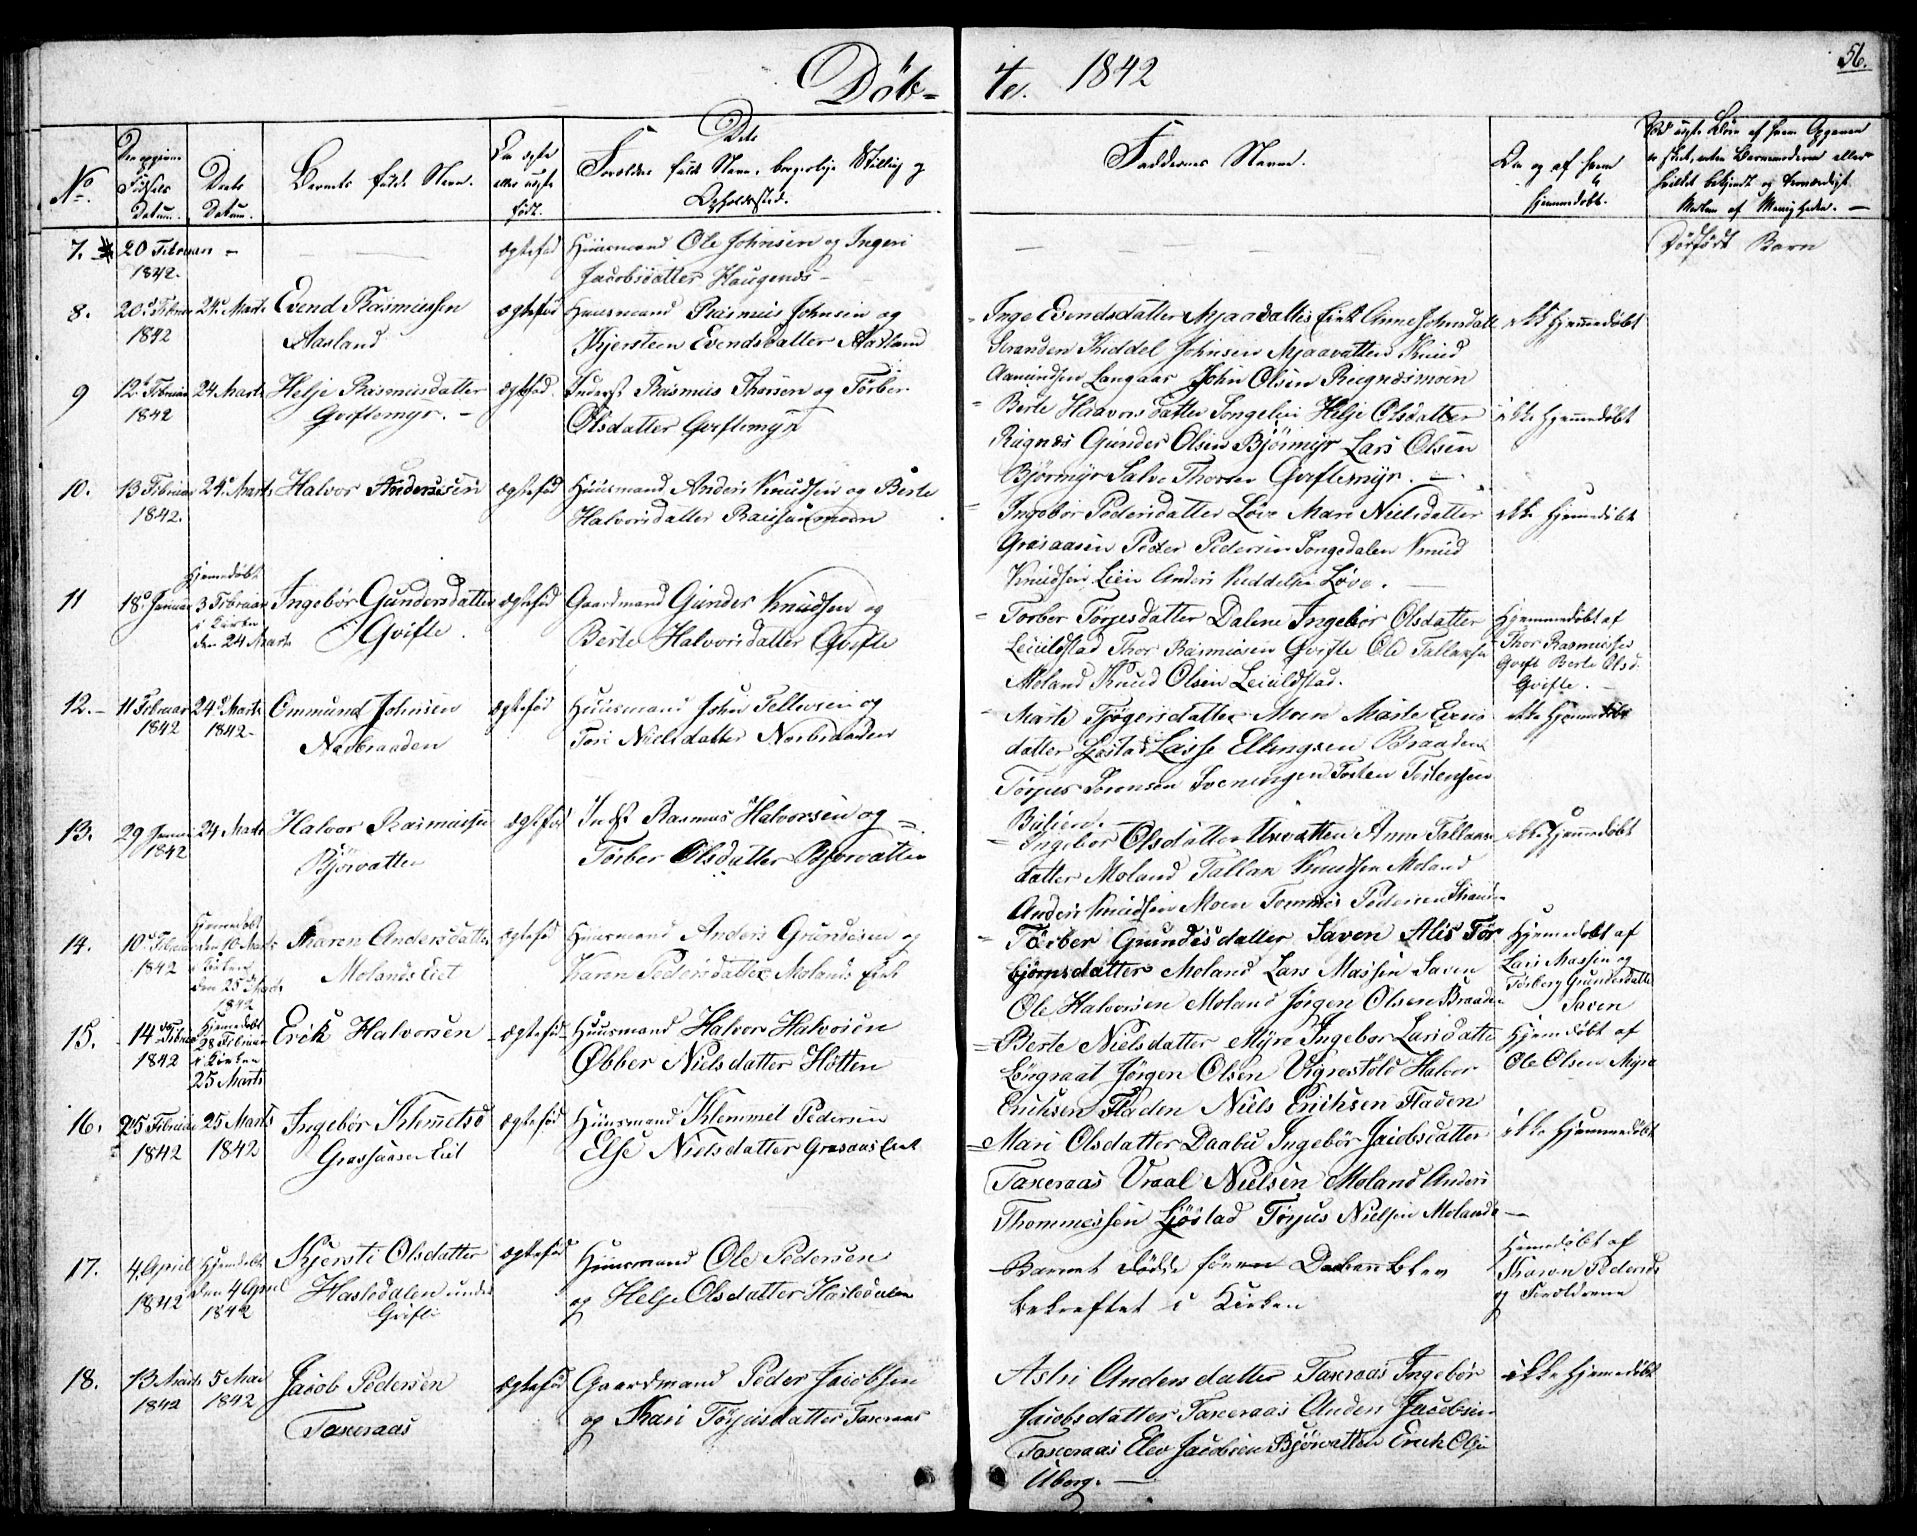 Döb-
te. 1842
56.
No.
Den opgivne Födsels Datum.
Daabs Datum.
Barnets fulde Navn.
Om ægte eller uægte född.
Dets Forældres fulde Navn, borgerlige Stilling og Opholdssted.
Faddernes Navne.
Om og af hvem hjemmedöbt.
7. 20 Februar 1842. — ægtefød Huusmand Ole Johnsen og Ingeri
Jacobsdatter Haugenæs — Dødfødt Barn
8. 20de Februar 1842 24de Marts Evend Rasmussen
Aasland
ægtefød Huusmand Rasmus Johnsen og
Kjersteen Evendsdatter Aasland
Inge Evendsdatter Mjaavatten Eiet Anne Johnsdatt
Stranden Kiddel Johnsen Mjaavatten Knud
Aamundsen Langaas John Olsen Rugnæsmoen
ikke hjemmedöbt
9 12te Februar 1842 24 Marts Helje Rasmusdatter
Gviftemyr. —
ægtefød. Inderst Rasmus Thorsen og Törber
Olsdatter Gviftemyr
Berte Haavorsdatter Songelein Helje Olsdatter
Rugnæs Gunder Olsen Bjørmyr Lars Olsen
Bjørmyr Salve Thorsen Gviftemyr. —
ikke hjemmedöbt
10. 13 Februar 1842. 24de Marts Halvor Andersen
ægtefød Huusmand Anders Knudsen og Berte
Halvorsdatter
Ingebör Pedersdatter Løve Mari Nielsdatter
Grasaasen Peder Pedersen Songedalen Knud
Knudsen Lien Anders Kiddelsen Løve. —
ikke hjemmedöbt
11 18de Januar Hjemmedöbt 3 Februar i Kirken den 24 Marts
Ingebör Gundersdatter
Gvifte.
ægtefød Gaardmand Gunder Knudsen og
Berte Halvorsdatter Gvifte
Torber Törjesdatter Dalene Ingebör Olsdatter
Leiuldstad Thor Rasmusen Gvifte Ole Tallaksen
Moland Knud Olsen Leiuldstad.
Hjemmedöbt af
Thor Rasmussen
Gvift Berte Olsd.
Gvifte. —
12. 11 Februar 1842 24de Marts 1842 Ommund Johnsen
Næsbraaden
ægtefød Huusmand John Tellevsen og
Tori Nielsdatter Næsbraaden
Marte Tjøgersdatter Moen Marte Evens
datter Ljøstad Lasse Ellingsen Braaden
Törjus Sorensen Sveningen Torsten Tostensen
ikke hjemmedöbt
13. 29 Januar 1842 24 Marts Halvor Rasmussen
Bjørvatten
ægtefød Indst Rasmus Halvorsen og
Torber Olsdatter Bjørvatten
Ingebor Olsdatter Uvatten Anne Tallaks
datter Moland Tallak Knudsen Moland
Anders Knudsen Moen Tommes Pedersen Strand
ikke hjemmedöbt
14. 10de Februar 1842 Hjemmedöbt den 10 Marts i Kirken den 25 Marts 1842
Karen Andersdatter
Molands Eiet
ægtefød Huusmand Anders Grundesen og
Karen Pedersdatter Molands Eiet
Törber Grundesdatter Saven Alis Tör
björnsdatter Moland Lars Massen Saven
Ole Halvorsen Moland Jørgen Olsen Braaden
Hjemmedöbt af
Lars Massen og
Torberg Grundesdatter
Saven
15. 14de Februar 1842 Hjemmedöbt 28 Februar i Kirken 25 Marts
Erik Halvorsen
ægtefød Huusmand Halvor Halvorsen
Øbber Nielsdatter Hotten
Berte Nielsdatter Myre Ingebor Larsdatter
Löngraat Jørgen Olsen Vigrestöld Halvor
Eriksen Fladen Niels Eriksen Fladen
Hjemmedöbt af
Ole Olsen Myre
16. 25 Februar 1842 25 Marts 1842 Ingebör Klemmetsd
Grasaasen Eiet
ægtefød Huusmand Klemmet Pedersen
Else Nielsdatter Grasaas Eiet
Mari Olsdatter Daabu Ingebör Jacobsdatter
Taxeraas Vraal Nielsen Moland Anders
Thommessen Ljöstad Törjus Nielsen Moland —
ikke hjemmedöbt
17. 4 April 1842 Hjemmedöbt den 4 April 1842
Kjersti Olsdatter
Hasledalen under
Gvifte
ægtefød Huusmand Ole Pedersen
og Helje Olsdatter Hasledalen
Barnet döde förend Daaben blev
bekræftet i Kirken
Hjemmedöbt af
Karen Pedersd
og Forældrene
18. 13 Marts 1842 5 Mai 1842 Jacob Pedersen
Taxeraas
ægtefød Gaardmand Peder Jacobsen
og Kari Törjusdatter Taxeraas
Aslu Andersdatter Taxeraas Ingebör
Jacobsdatter Taxeraas Anders Jacobsen
Taxeraas Elev Jacobsen Bjørvatten Erik Olsen
Uberg. —
ikke hjemmedöbt